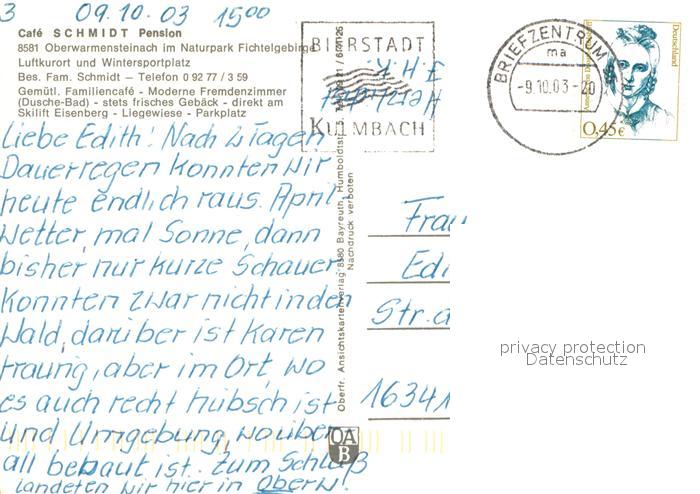 3 09.10.03 15⁰⁰
Café SCHMIDT Pension
8581 Oberwarmensteinach im Naturpark Fichtelgebirge
Luftkurort und Wintersportplatz
Bes. Fam. Schmidt – Telefon 0 92 77 / 3 59
Gemütl. Familiencafé - Moderne Fremdenzimmer
(Dusche-Bad) - stets frisches Gebäck - direkt am
Skilift Eisenberg - Liegewiese - Parkplatz
Liebe Edith! Nach 2 Tagen
Dauerregen konnten wir
heute endlich raus. April-
Wetter, mal Sonne, dann
bisher nur kurze Schauer
Konnten zwar nicht in den
Wald, darüber ist Karen
traurig, aber im Ort, wo
es auch recht hübsch ist
und Umgebung, wo über-
all bebaut ist. Zum Schluß
landeten wir hier in Oberw!
BIERSTADT
KULMBACH
BRIEFZENTRUM
ma
-9.10.03-20
Deutschland
0,45€
Oberfr. Ansichtskartenverlag 8580 Bayreuth, Humboldtst
Nachdruck verboten
OA
B
Frau
Edi
Str. d
16341
privacy protection
Datenschutz